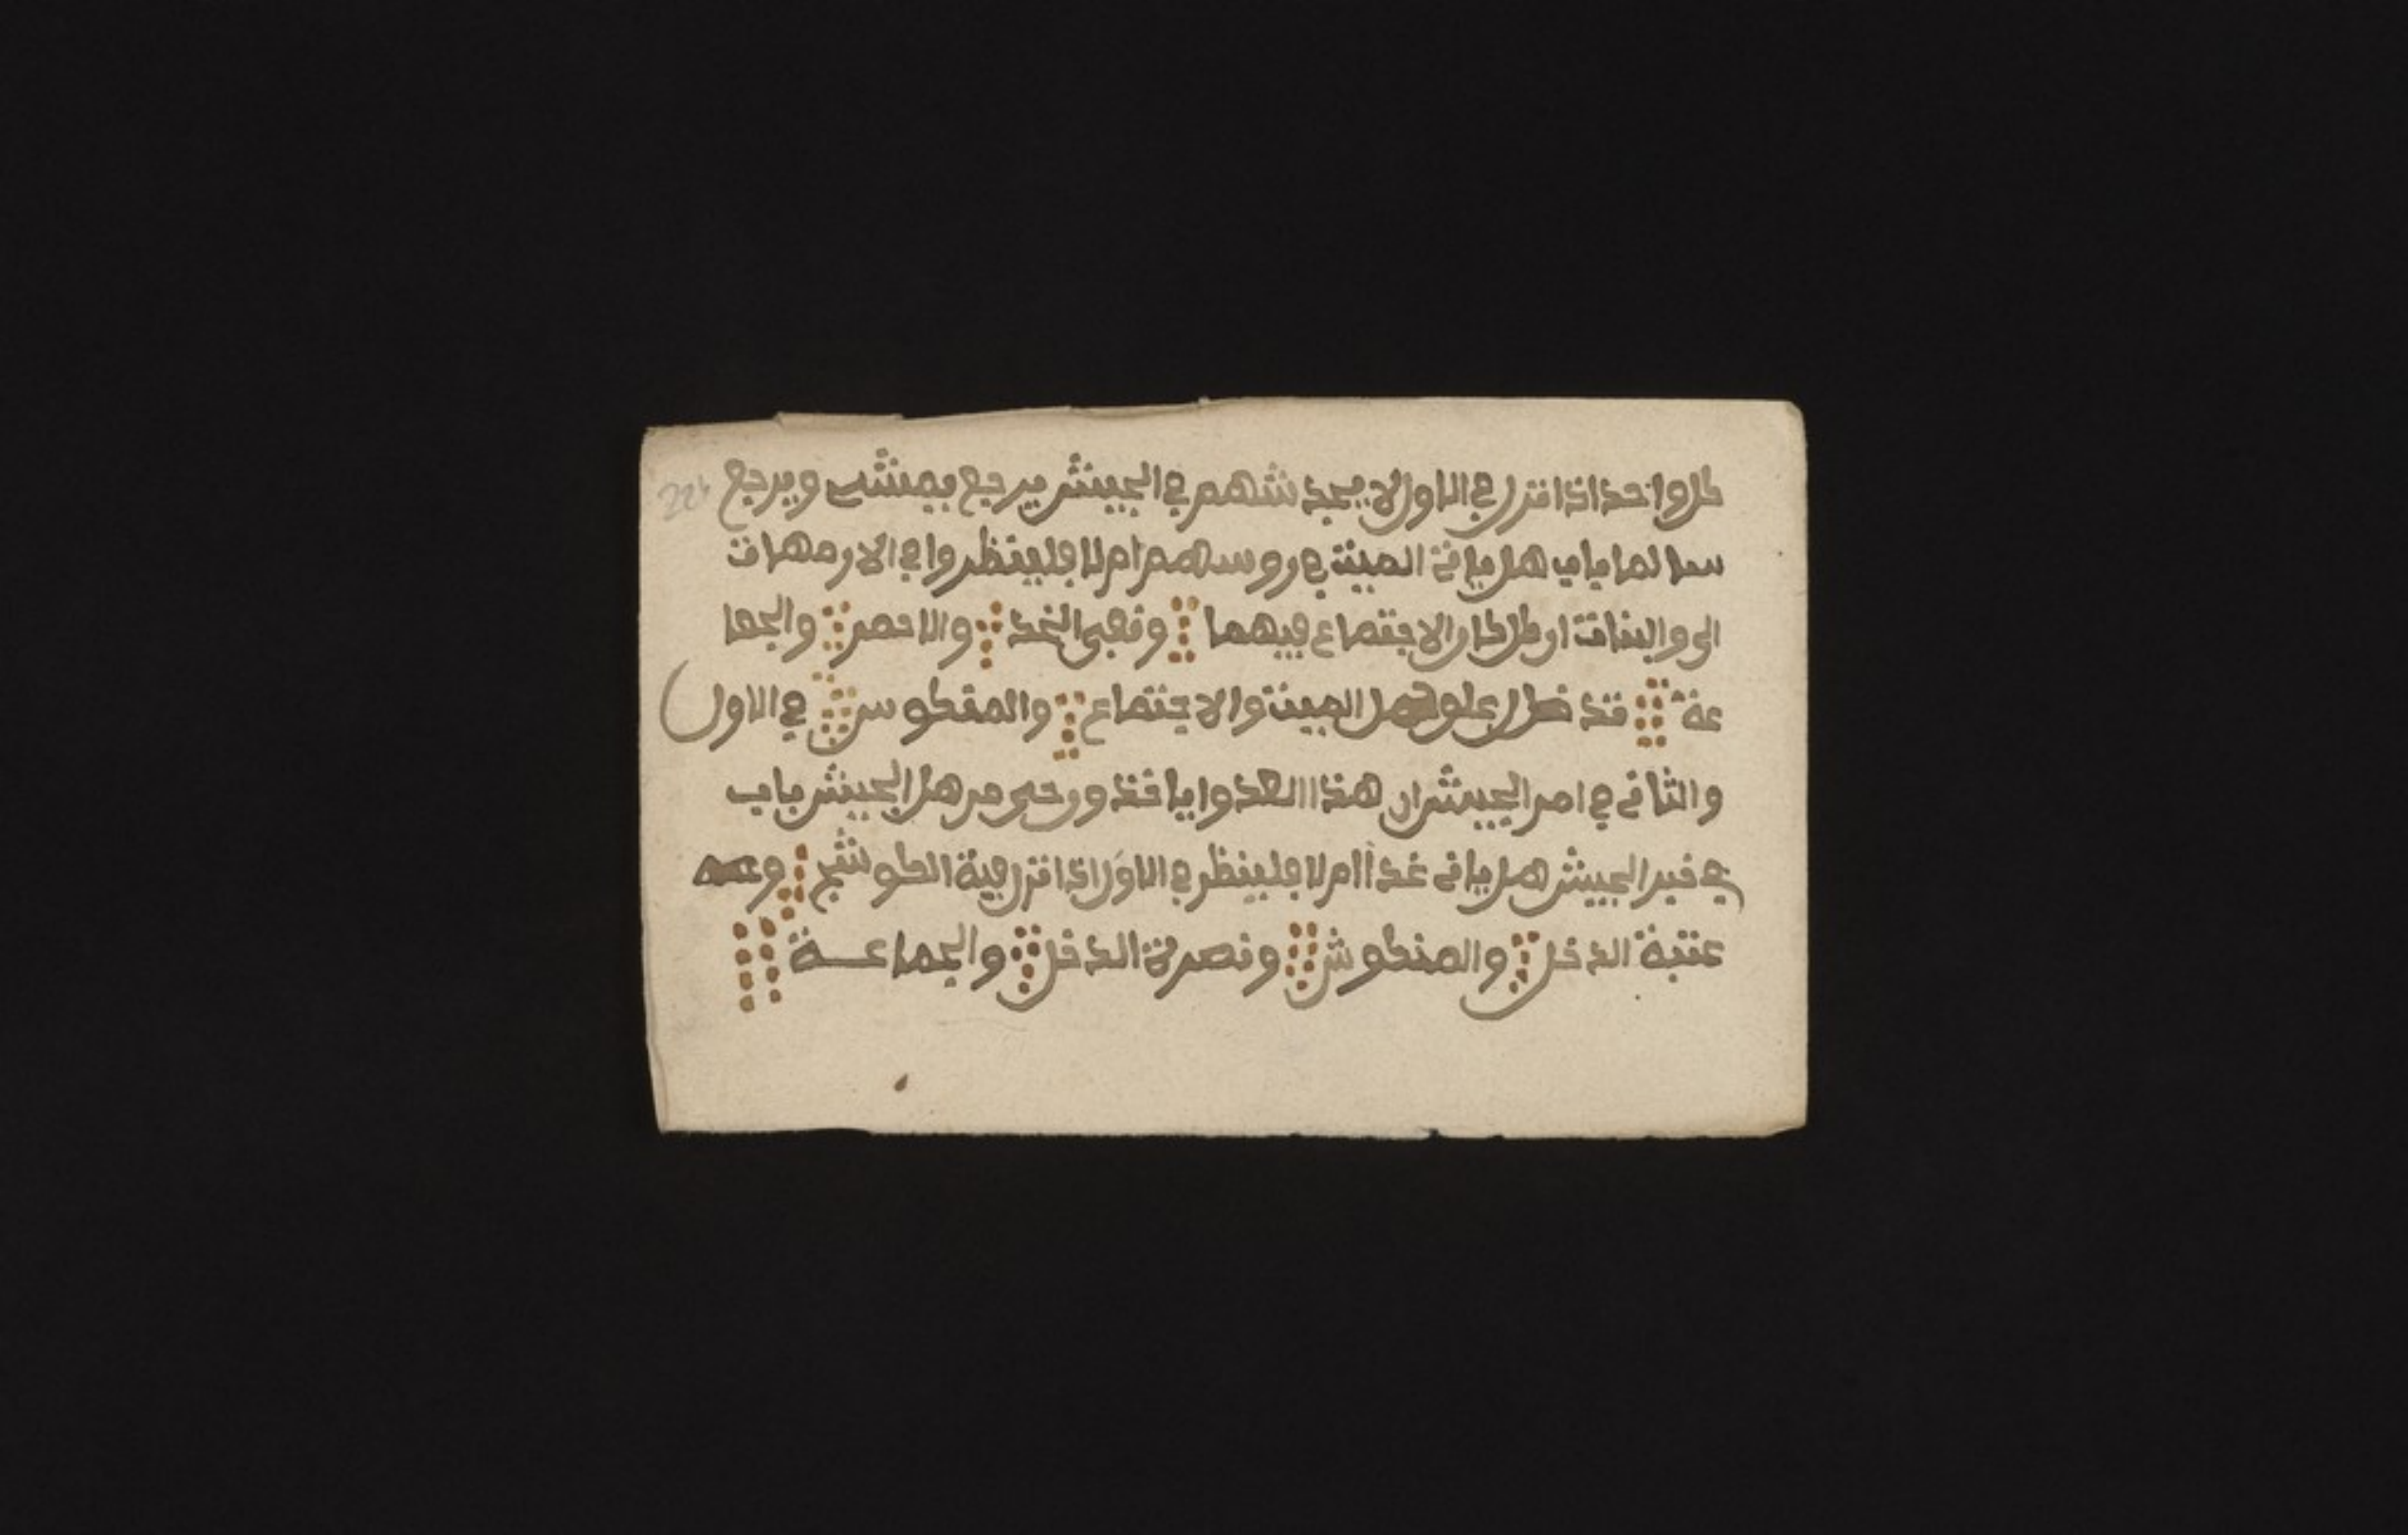 كل واحد اذا نزل في الاول لا يجد شهم في الجيش يرجع بمشى ويرجع
سالما باب هل ياتى الميتة في روسهم ام لا فلينظروا في الا رمهات
الى والبنات ان كان الاجتماع فيهما ونفى الخد والاحمر والجما
عة قد على الميتة والاجتماع والمنكوس في الاول
والثانى في امر الجيش ان هذا العدوا ياتى ورحى من هل الجيش باب
في خبر الجيش هل ياتى غدا ام لا فلينظر في الاول اذا نزل فيه الكوشج و
عتبة الدخل والمنكوش ونصرة الدخل والجماعة